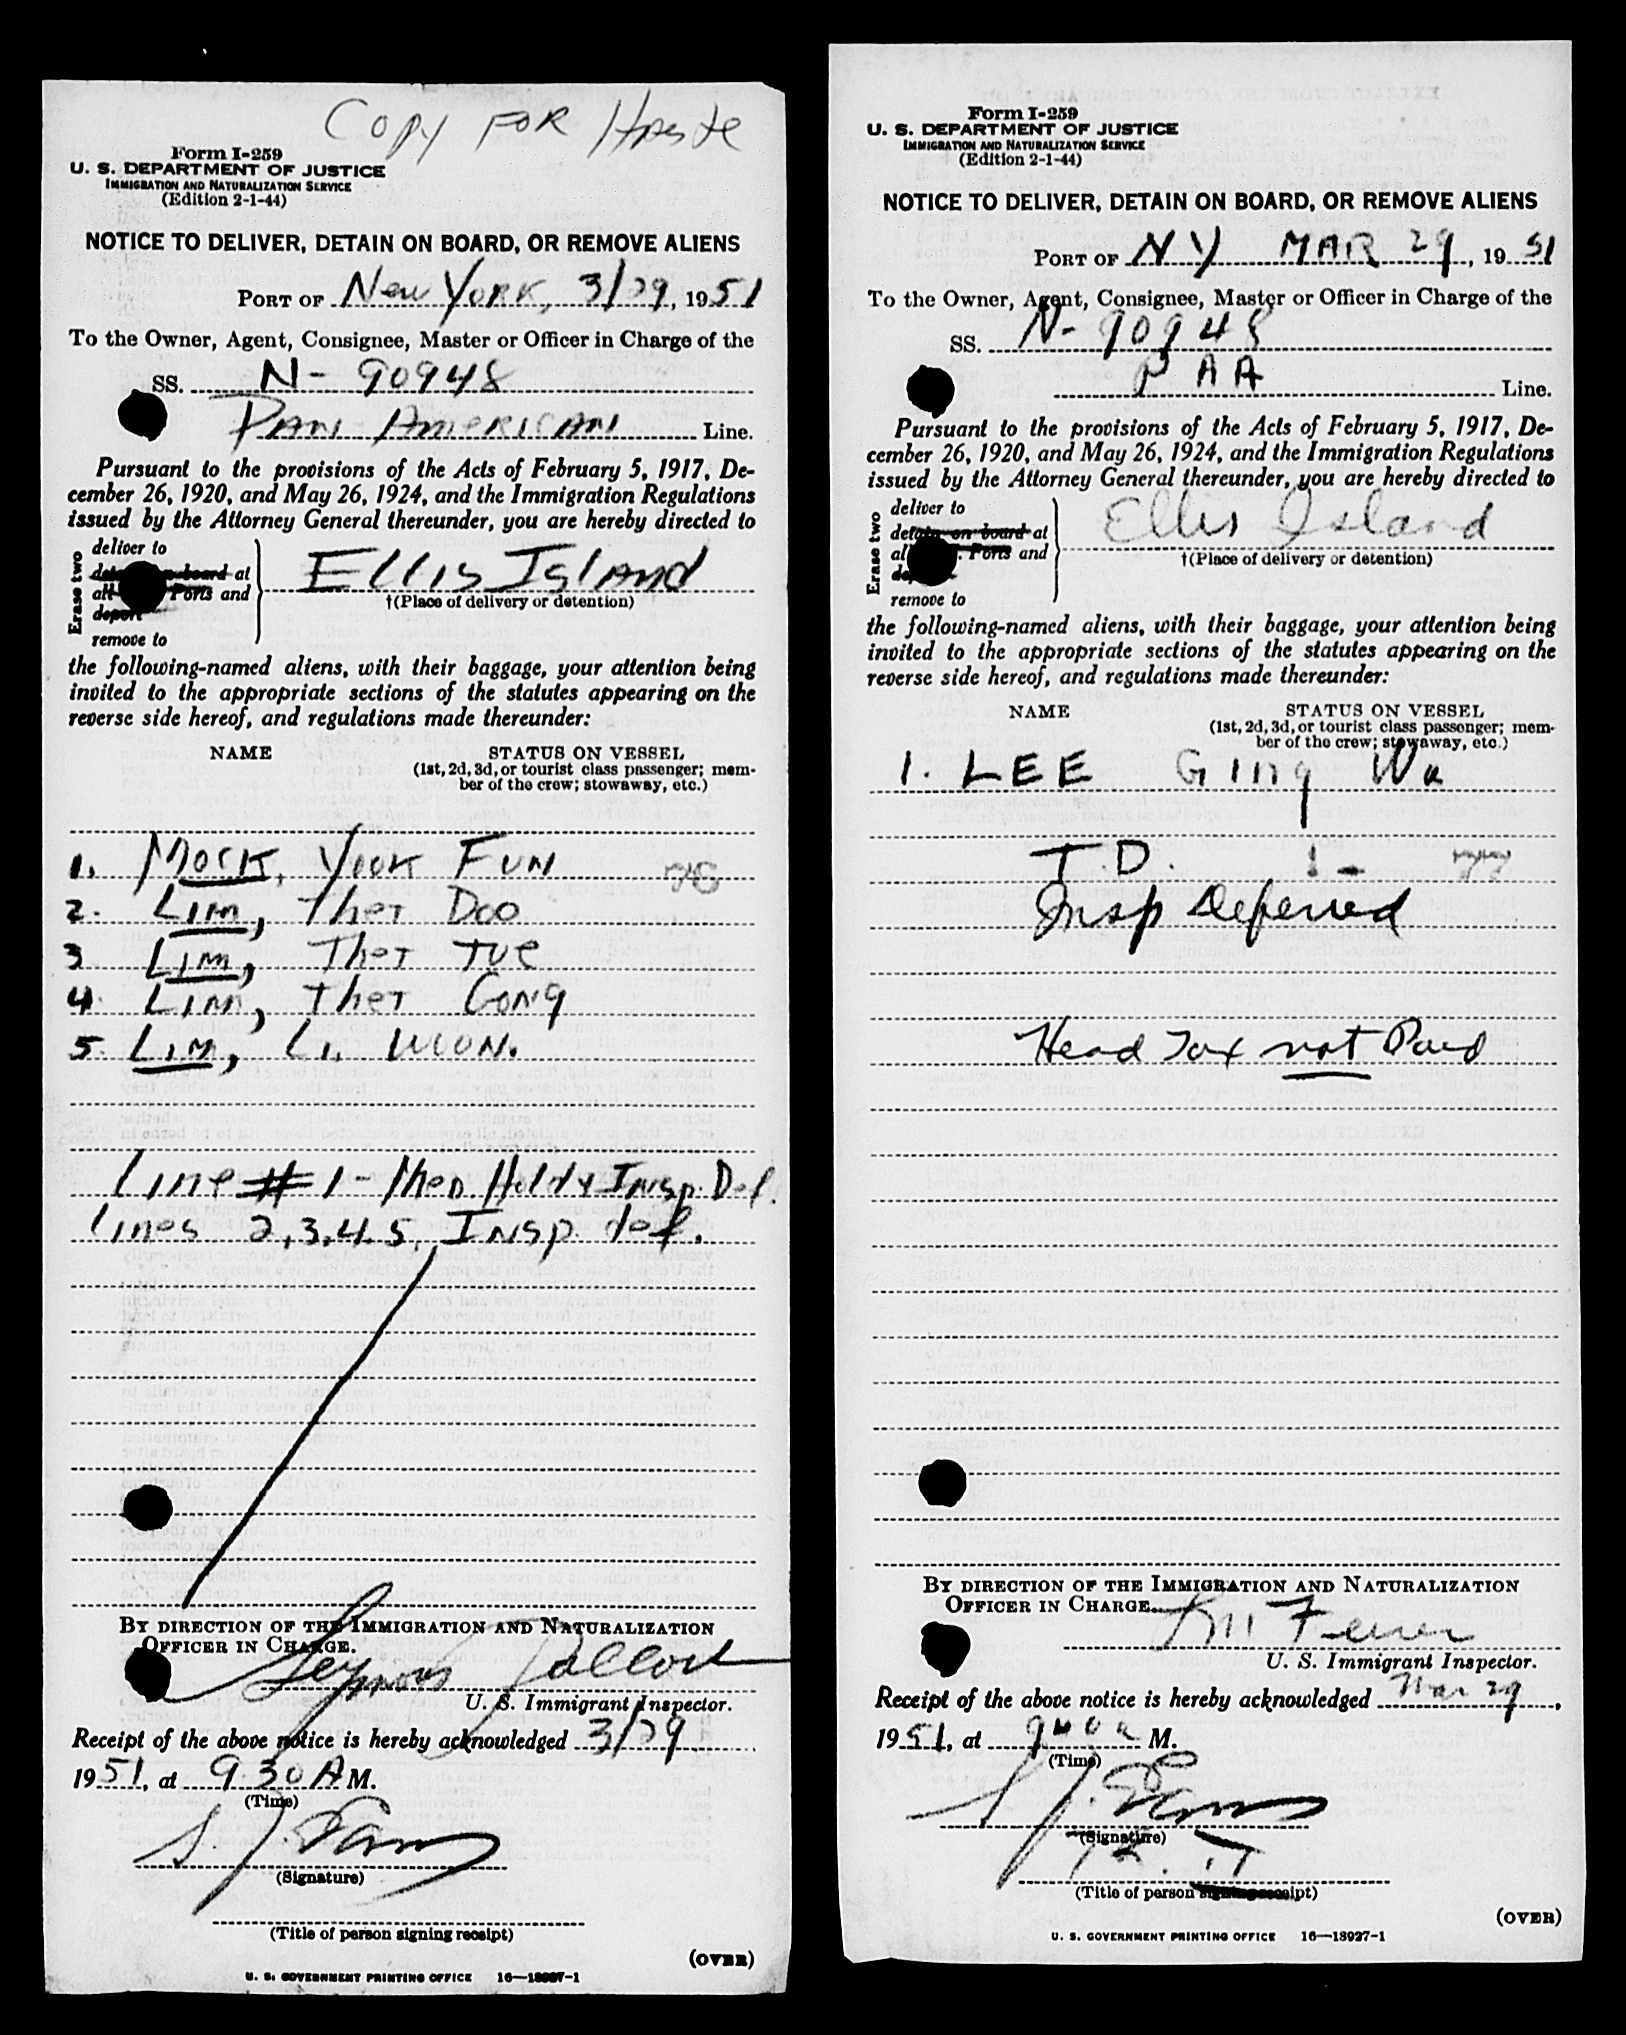 Copy FOR
Form I-259
U. S. DEPARTMENT OF JUSTICE
IMMIGRATION AND NATURALIZATION SERVICE
(Edition 2-1-44)
NOTICE TO DELIVER, DETAIN ON BOARD, OR REMOVE ALIENS
PORT OF New York, 3/29, 1951
To the Owner, Agent, Consignee, Master or Officer in Charge of the
SS. N-90948
PAN AMERICAN Line.
Pursuant to the provisions of the Acts of February 5, 1917, De-
cember 26, 1920, and May 26, 1924, and the Immigration Regulations
issued by the Attorney General thereunder, you are hereby directed to
Erase two
deliver to
detain on board at
all Ports and
deport
remove to
Ellis Island
†(Place of delivery or detention)
the following-named aliens, with their baggage, your attention being
invited to the appropriate sections of the statutes appearing on the
reverse side hereof, and regulations made thereunder:
NAME STATUS ON VESSEL
(1st, 2d, 3d, or tourist class passenger; mem-
ber of the crew; stowaway, etc.)
1. Mock, Yook Fun
2. Lim, Thet Doo
3 Lim, Thet Tue
4. Lim, Thet Gong
5. Lim, Li Woon.
Line #1 - Med. Hold y Insp. Def.
Lines 2, 3, 4. 5, Insp. def.
BY DIRECTION OF THE IMMIGRATION AND NATURALIZATION
OFFICER IN CHARGE.
Seymour Pollock
U. S. Immigrant Inspector.
Receipt of the above notice is hereby acknowledged 3/29
1951, at 9 30 A M.
(Time)
S. J.
(Signature)
(Title of person signing receipt)
(OVER)
U. S. GOVERNMENT PRINTING OFFICE 16—18927-1
Form I-259
U. S. DEPARTMENT OF JUSTICE
IMMIGRATION AND NATURALIZATION SERVICE
(Edition 2-1-44)
NOTICE TO DELIVER, DETAIN ON BOARD, OR REMOVE ALIENS
PORT OF NY MAR 29, 1951
To the Owner, Agent, Consignee, Master or Officer in Charge of the
SS. N-90948
PAA Line.
Pursuant to the provisions of the Acts of February 5, 1917, De-
cember 26, 1920, and May 26, 1924, and the Immigration Regulations
issued by the Attorney General thereunder, you are hereby directed to
Erase two
deliver to
detain on board at
all Ports and
remove to
Ellis Island
†(Place of delivery or detention)
the following-named aliens, with their baggage, your attention being
invited to the appropriate sections of the statutes appearing on the
reverse side hereof, and regulations made thereunder:
NAME STATUS ON VESSEL
(1st, 2d, 3d, or tourist class passenger; mem-
ber of the crew; stowaway, etc.)
1. LEE Ging Wu
T.D. 1-
Insp Deferred
Head Tax not Paid
BY DIRECTION OF THE IMMIGRATION AND NATURALIZATION
OFFICER IN CHARGE.
U. S. Immigrant Inspector.
Receipt of the above notice is hereby acknowledged Mar 29,
1951, at M.
(Time)
S. J.
(Signature)
(Title of person signing receipt)
(OVER)
U. S. GOVERNMENT PRINTING OFFICE 16—18927-1